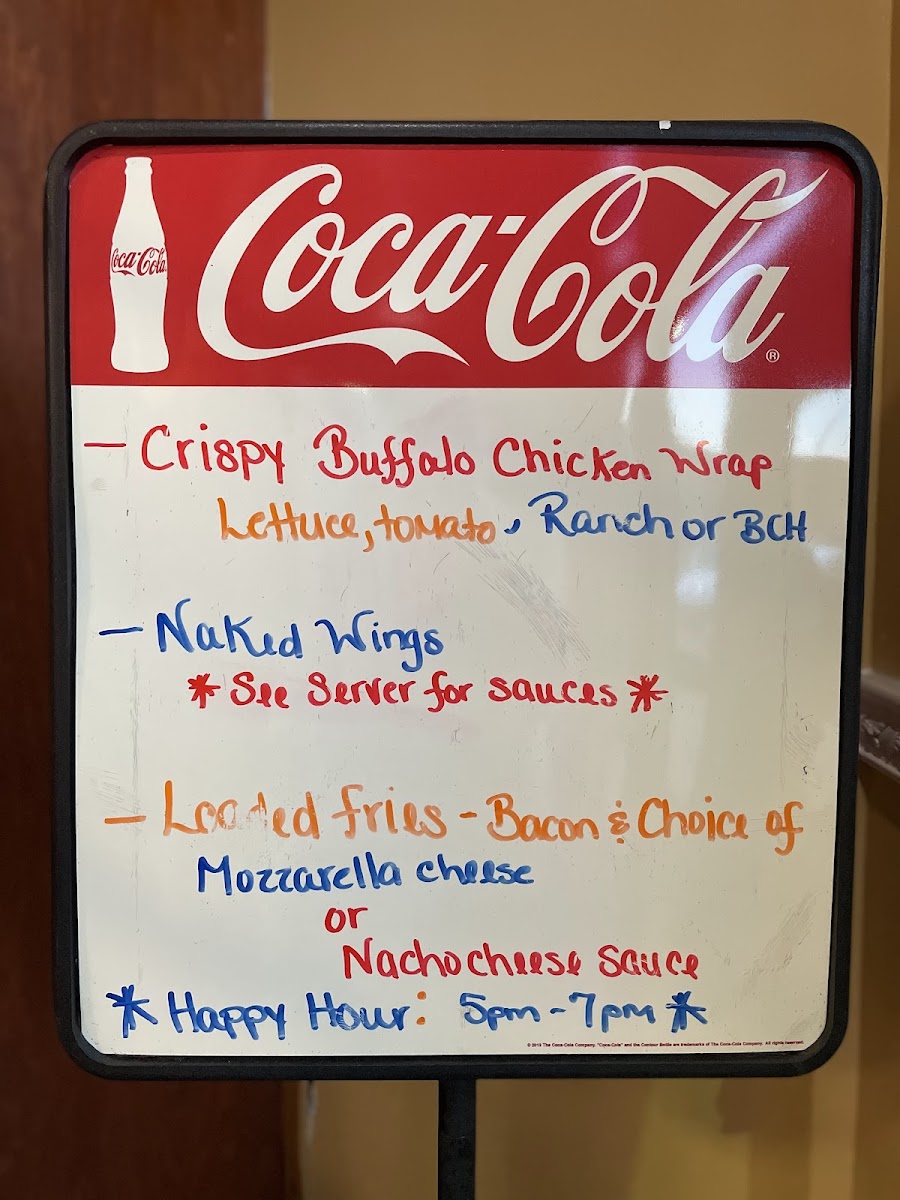 Coca-Cola
Coca-Cola®
— Crispy Buffalo Chicken Wrap
Lettuce, tomato, Ranch or BCH
— Naked Wings
* See Server for sauces *
— Loaded fries - Bacon & Choice of
Mozzarella cheese
or
Nacho cheese Sauce
* Happy Hour: 5pm - 7pm *
© 2015 The Coca-Cola Company. "Coca-Cola" and the Contour Bottle are trademarks of The Coca-Cola Company. All rights reserved.